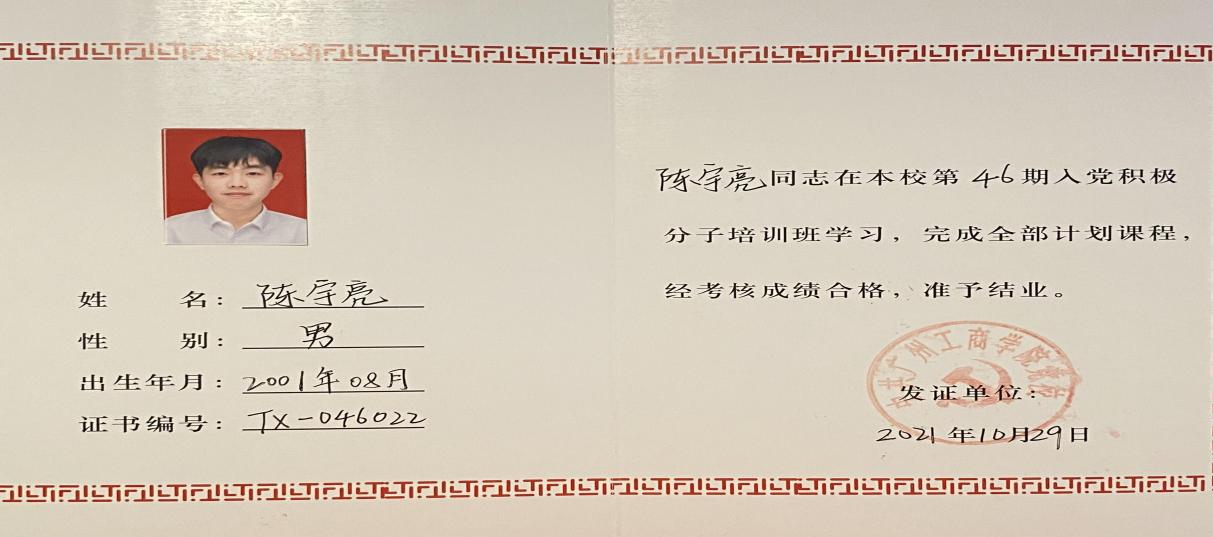 姓 名：陈宇亮
性 别：男
出生年月：2001年08月
证书编号：TX-046022
陈宇亮同志在本校第46期入党积极
分子培训班学习，完成全部计划课程，
经考核成绩合格，准予结业。
中共广州工商学院党校
发证单位：
2021年10月29日